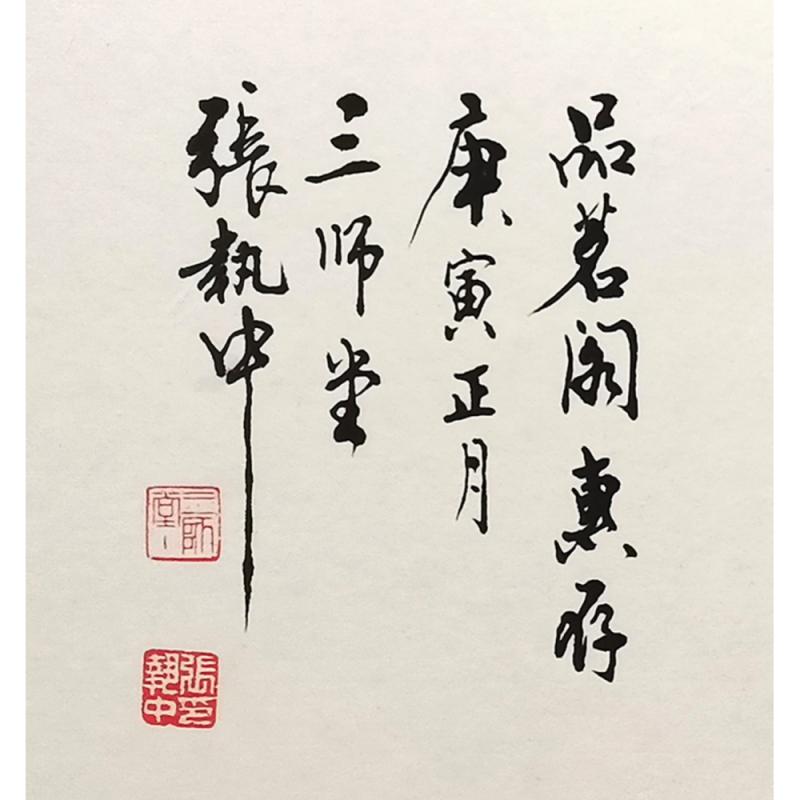 品茗阁惠存
庚寅正月
三师堂
張執中
三師堂
張執中印